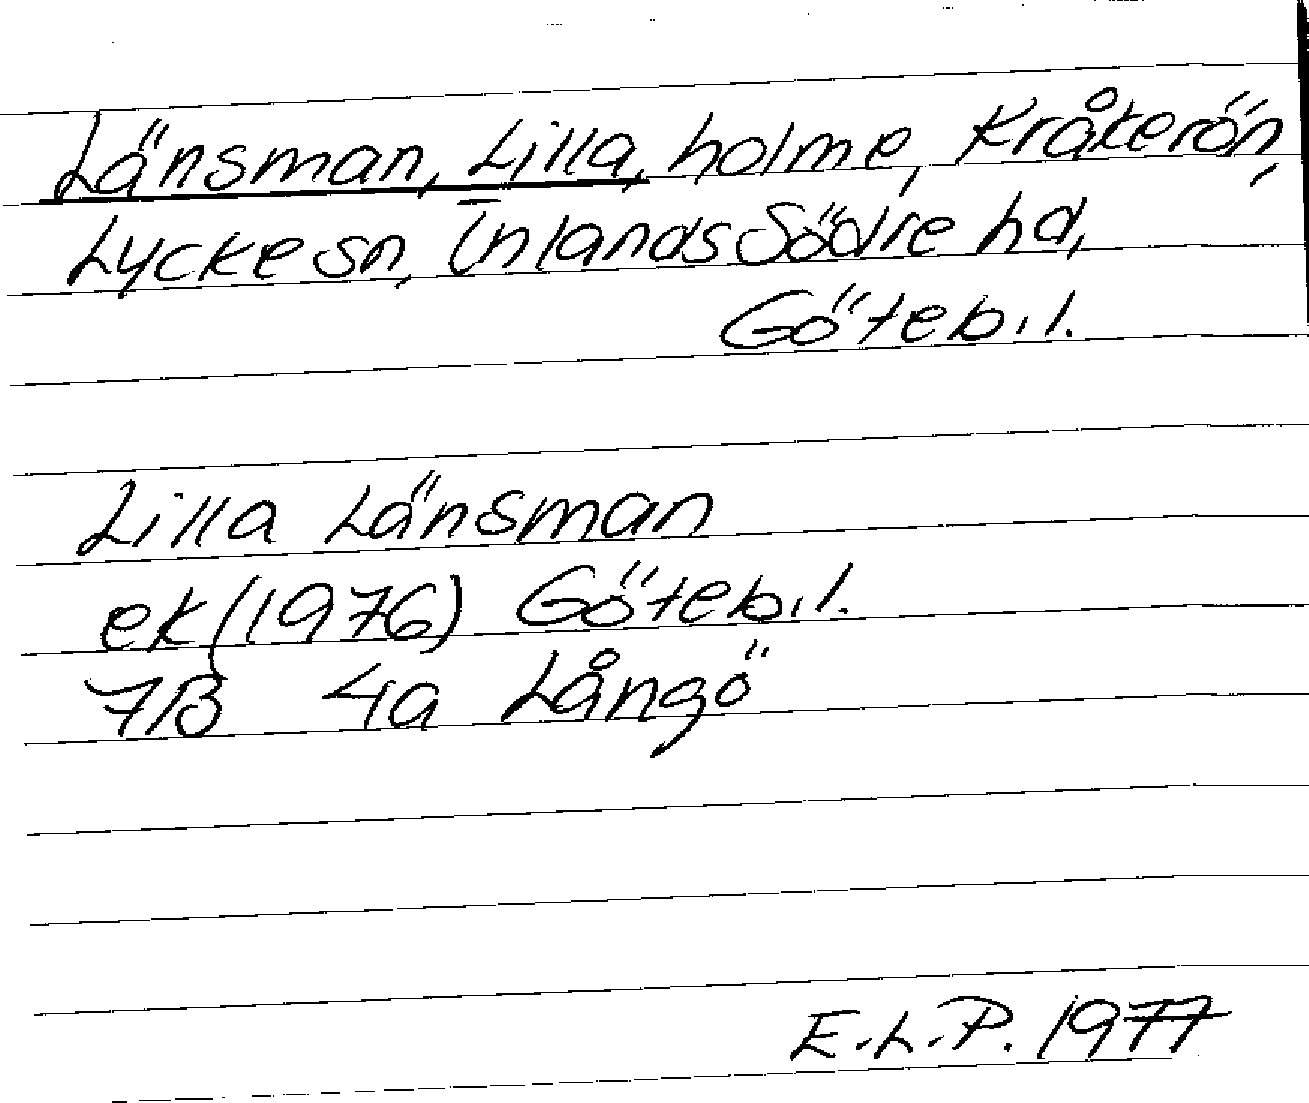 Länsman, Lilla, holme, Kråkerön,
Lycke sn, Inlands Södre hd,
Göteb. l.
Lilla Länsman
ek (1976) Göteb. l.
7B 4a Långö
E.L.P. 1977